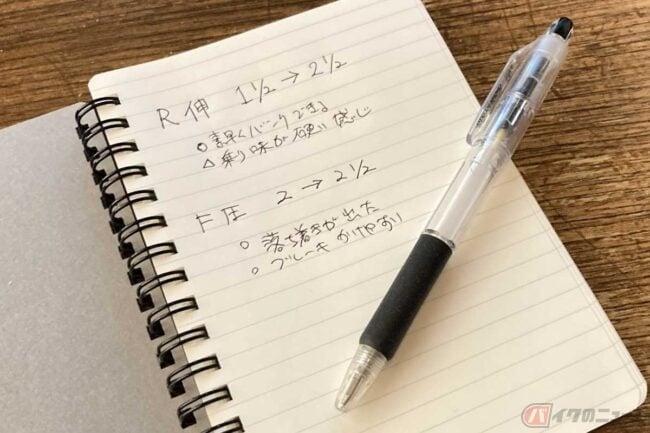 R伸 1 1/2 → 2 1/2
○素早くバンクできる
△乗り味が硬い感じ
F圧 2 → 2 1/2
○落ち着きが出た
○ブレーキかけやすい
バイクのニュース